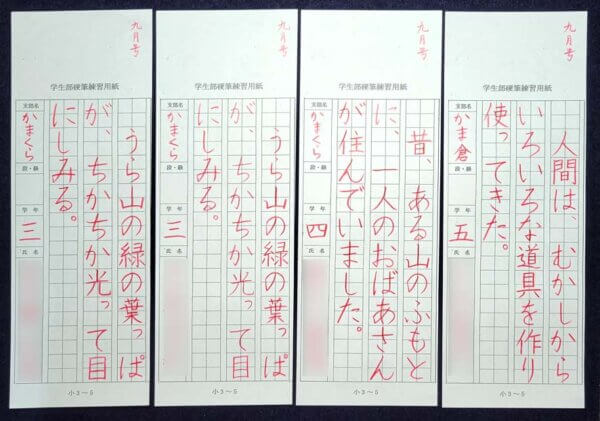 九月号
学生部硬筆練習用紙
人間は、むかしから
いろいろな道具を作り
使ってきた。
支部名
かま倉
段・級
学年
五
氏名
小3～5
九月号
学生部硬筆練習用紙
昔、ある山のふもと
に、一人のおばあさん
が住んでいました。
支部名
かまくら
段・級
学年
四
氏名
小3～5
九月号
学生部硬筆練習用紙
うら山の緑の葉っぱ
が、ちかちか光って目
にしみる。
支部名
かまくら
段・級
学年
三
氏名
小3～5
九月号
学生部硬筆練習用紙
うら山の緑の葉っぱ
が、ちかちか光って目
にしみる。
支部名
かまくら
段・級
学年
三
氏名
小3～5